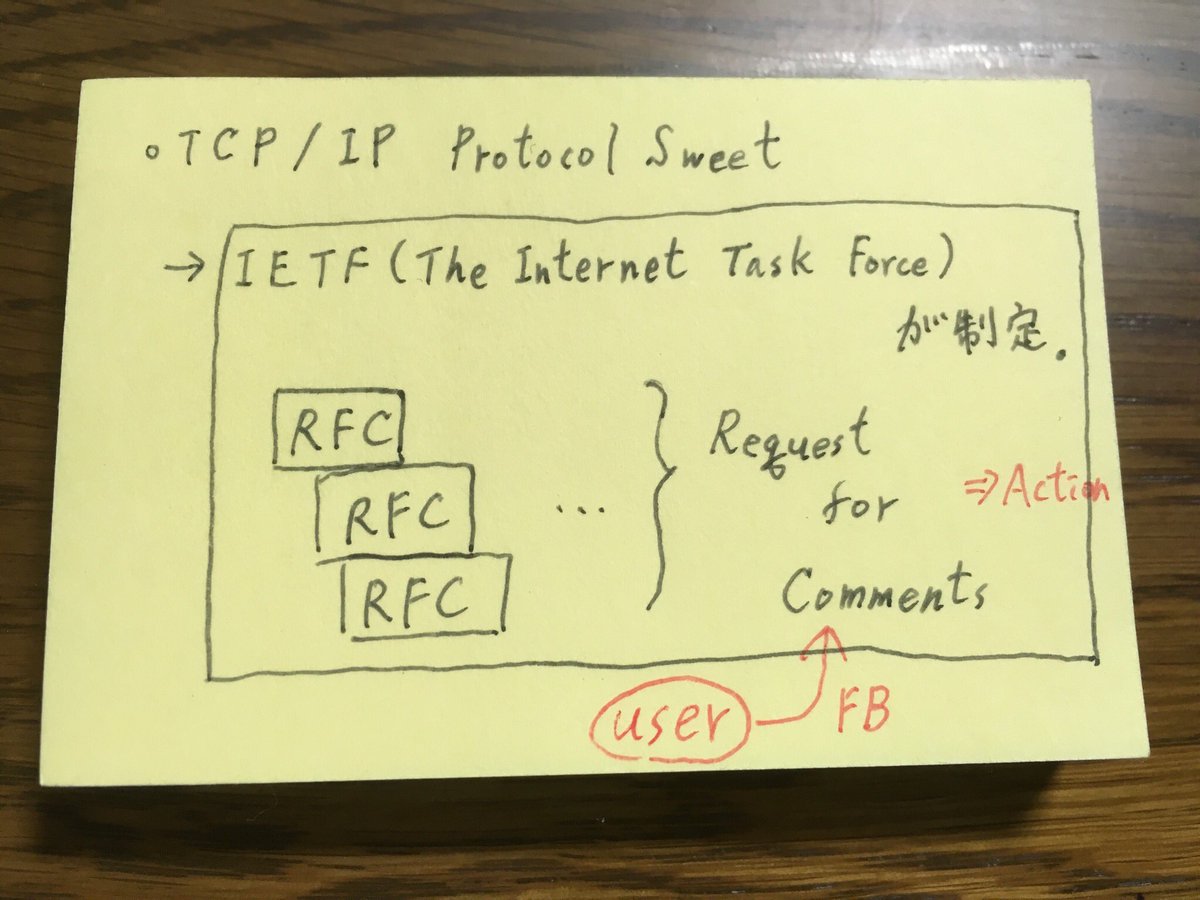 。TCP/IP Protocol Sweet
→ IETF (The Internet Task Force)
が制定.
RFC
RFC
RFC
...
Request
for
Comments
⇒ Action
user
FB